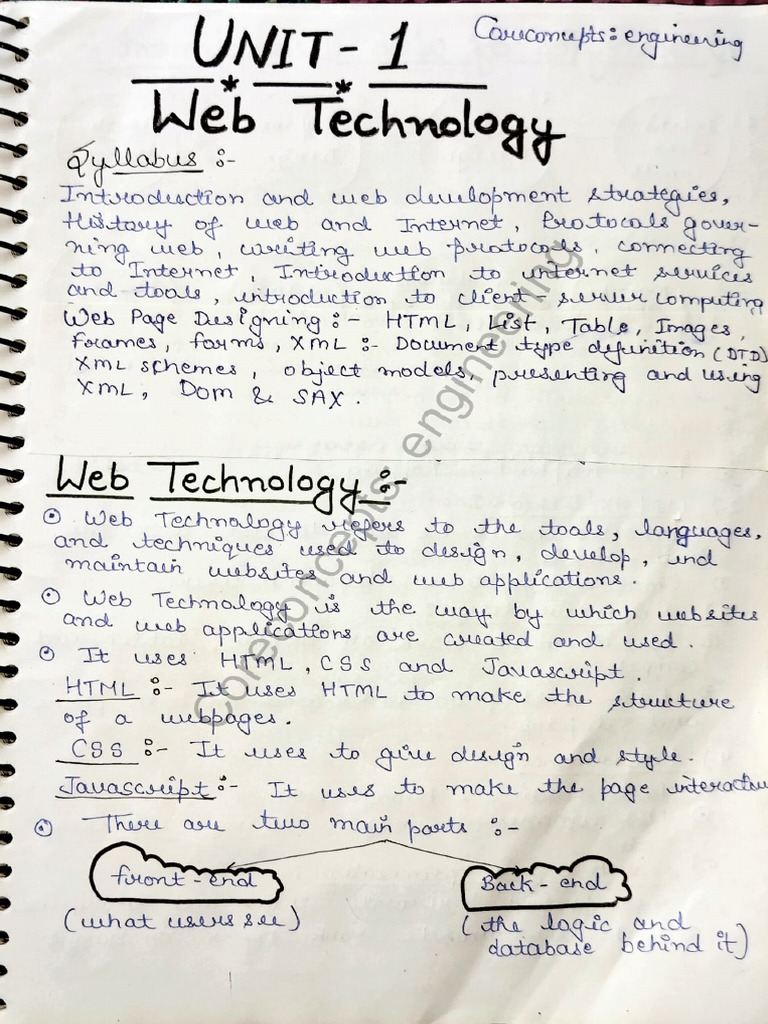 UNIT - 1
Coreconcepts: engineering
Web Technology
Syllabus :-
Introduction and web development strategies,
History of web and Internet, Protocals gover-
ning web, writing web protocols, connecting
to Internet, Introduction to internet services
and tools, introduction to client - server computing
Web Page Designing :- HTML, List, Table, Images,
frames, forms, XML :- Document type definition (DTD)
XML schemes, object models, presenting and using
XML, DOM & SAX.
Web Technology :-
Web Technology refers to the tools, languages,
and techniques used to design, develop, and
maintain websites and web applications.
Web Technology is the way by which websites
and web applications are created and used.
It uses HTML, CSS and Javascript.
HTML :- It uses HTML to make the structure
of a webpages.
CSS :- It uses to give design and style.
Javascript :- It uses to make the page interactive
There are two main parts :-
front - end
Back - end
(what users see)
(the logic and
database behind it)
coreconcepts engineering